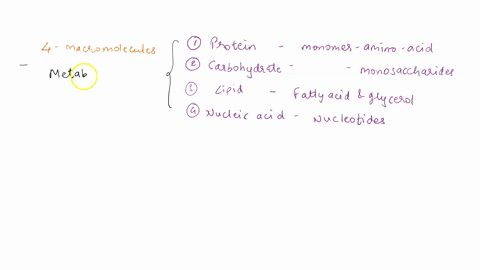 4 - macromolecules
- Metab
① Protein - monomer - amino - acid
② Carbohydrate - - monosaccharides
③ Lipid - Fatty acid & glycerol
④ Nucleic acid - Nucleotides